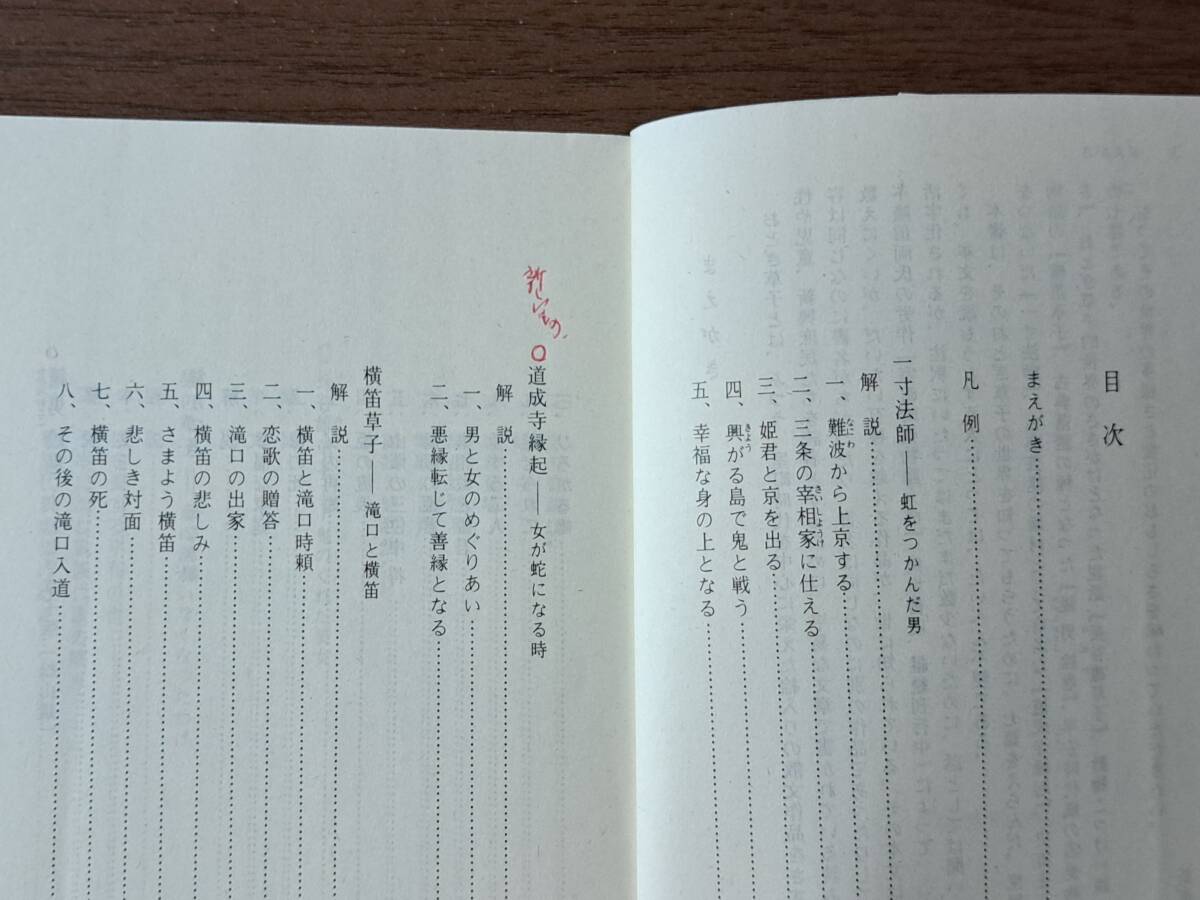 目次
まえがき
凡例
一寸法師――虹をつかんだ男
解説
一、難波から上京する
二、三条の宰相家に仕える
三、姫君と京を出る
四、興がる島で鬼と戦う
五、幸福な身の上となる
○道成寺縁起――女が蛇になる時
解説
一、男と女のめぐりあい
二、悪縁転じて善縁となる
横笛草子――滝口と横笛
解説
一、横笛と滝口時頼
二、恋歌の贈答
三、滝口の出家
四、横笛の悲しみ
五、さまよう横笛
六、悲しき対面
七、横笛の死
八、その後の滝口入道